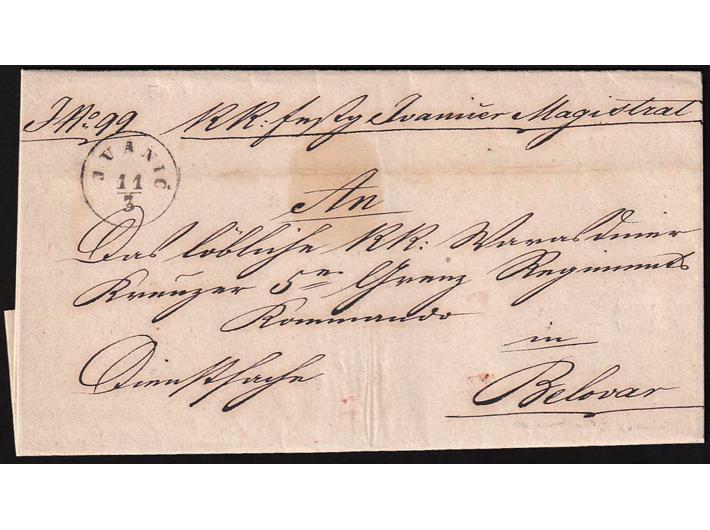 J No 99 KK: festg Ivanićer Magistrat
JVANIĆ
11/3
An
Das löbliche KK: Warasdiner
Kreuzer 5er Grenz Regiments
Kommando
in
Dienstsache
Belovar